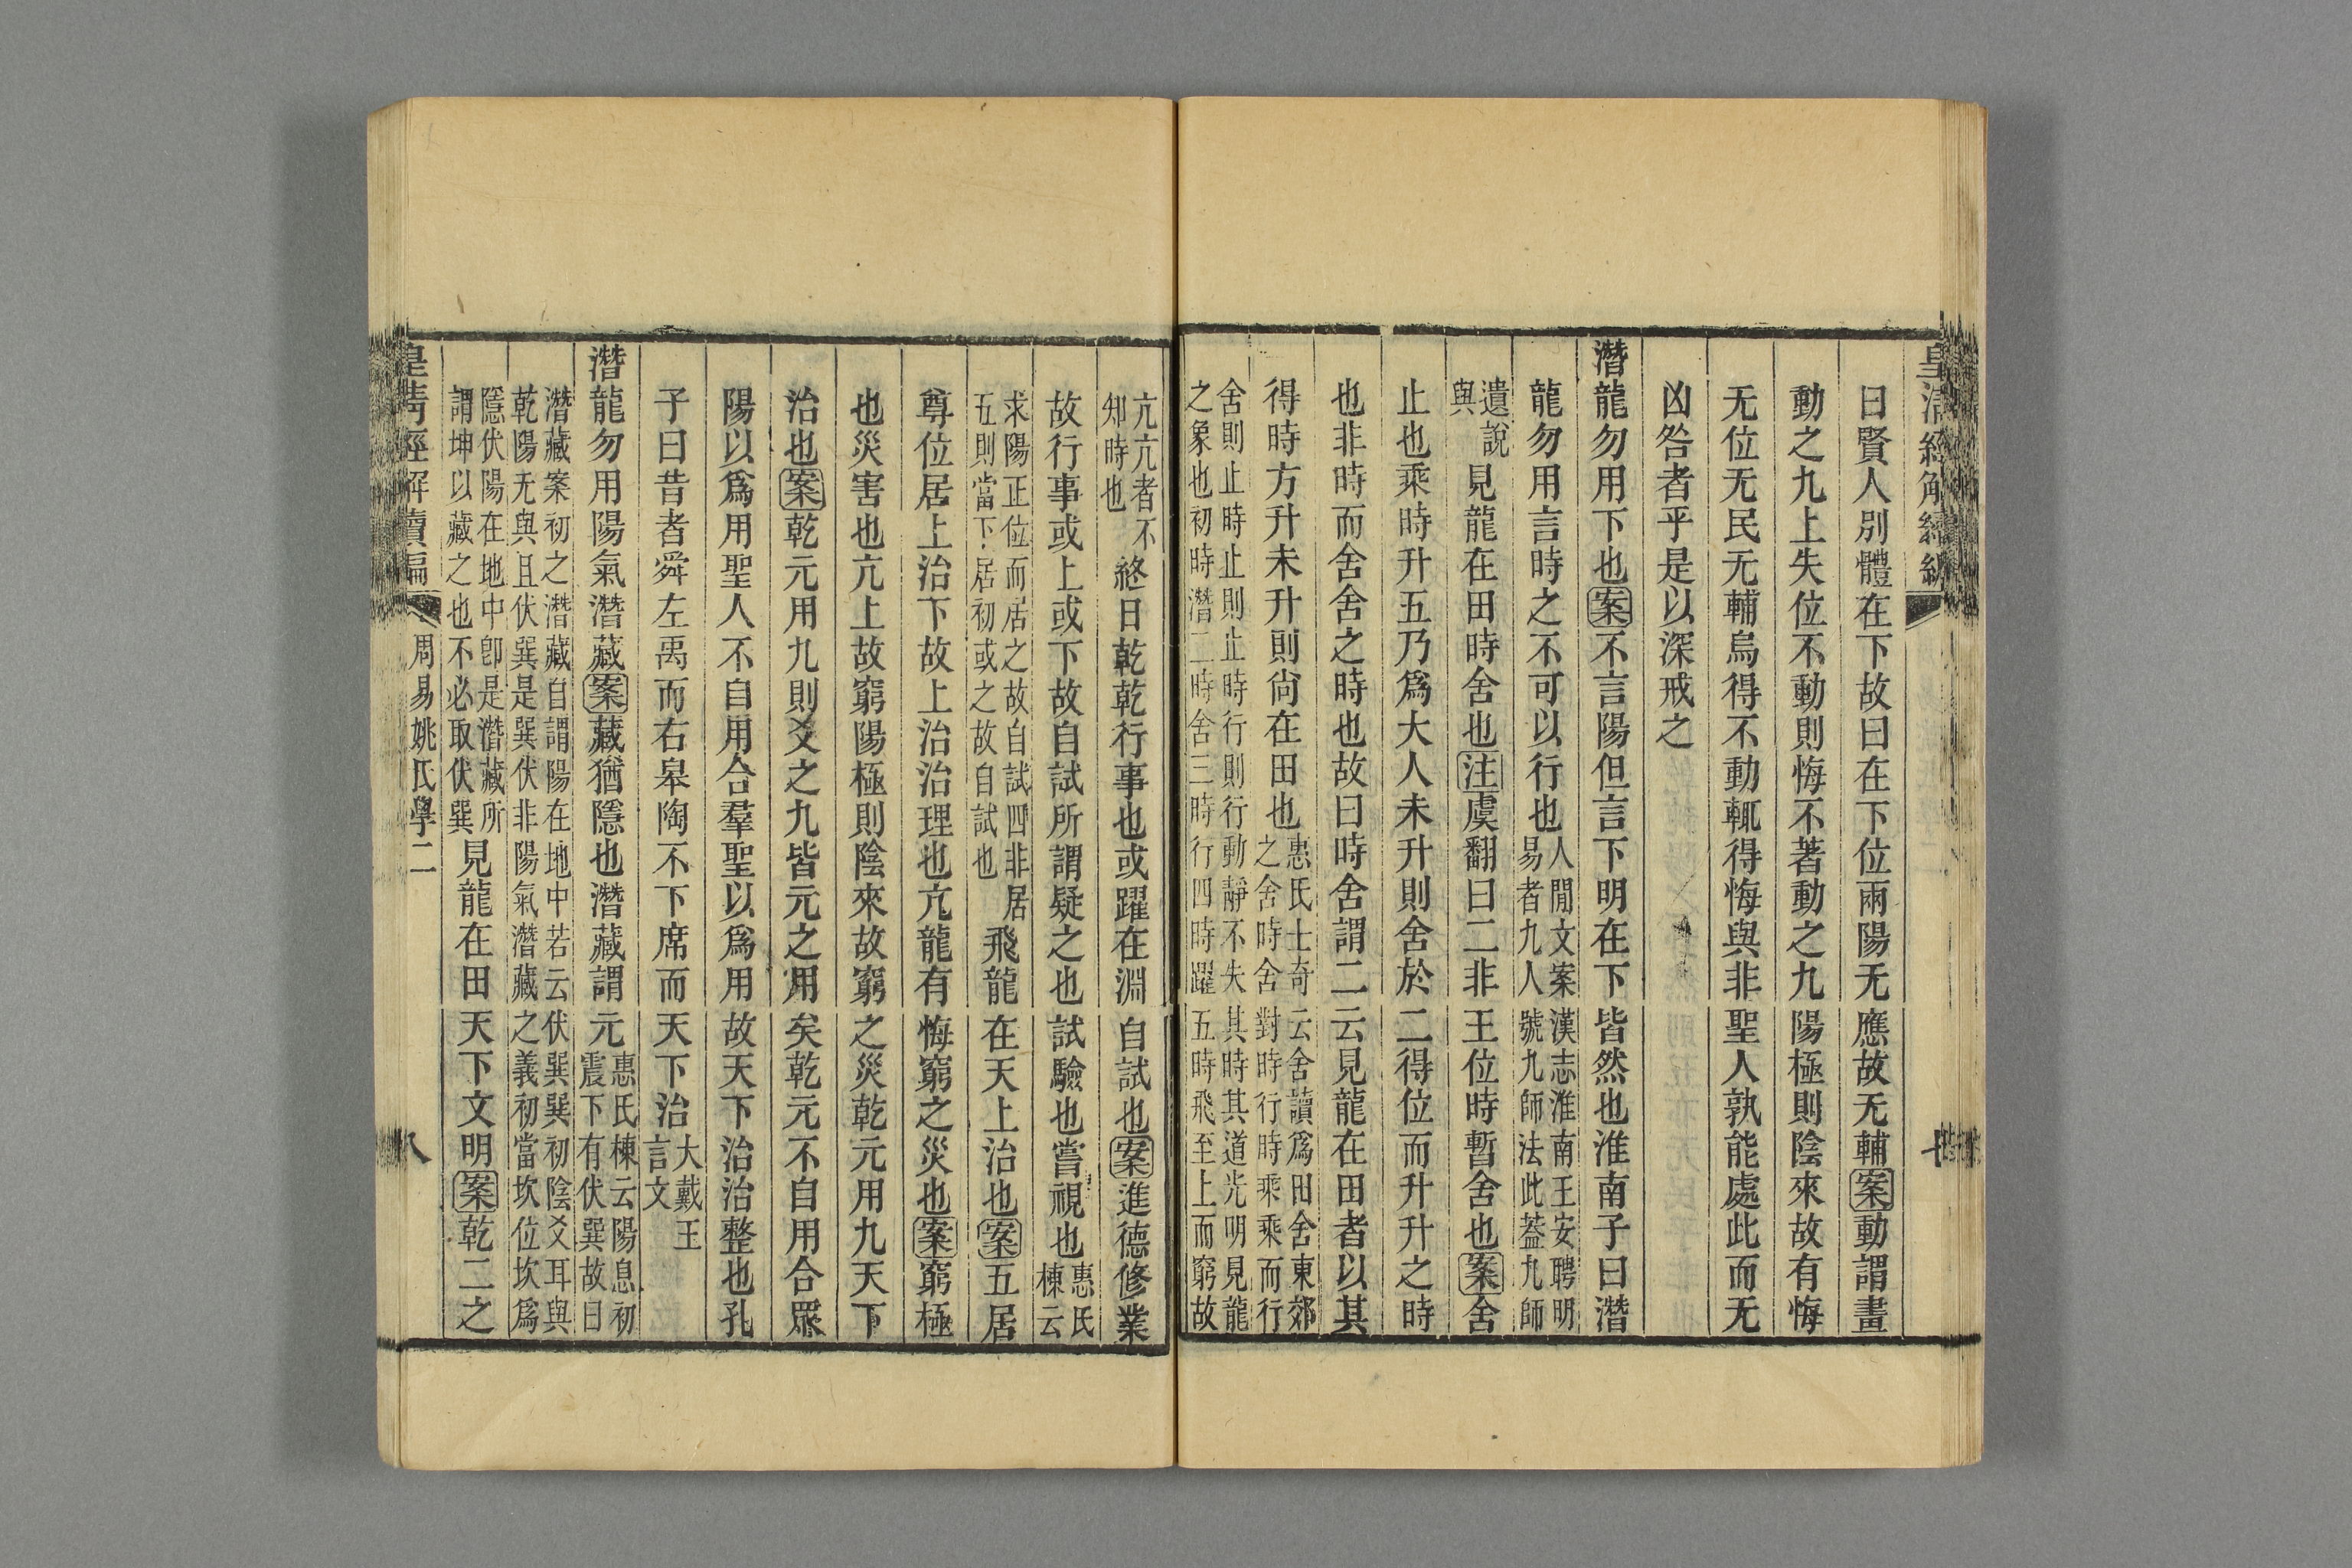 曰賢人別體在下故曰在下位兩陽无應故无輔案動謂畫
動之九上失位不動則悔不著動之九陽極則陰來故有悔
无位无民无輔烏得不動輒得悔與非聖人孰能處此而无
凶咎者乎是以深戒之
潛龍勿用下也案不言陽但言下明在下皆然也淮南子曰潛
龍勿用言時之不可以行也人閒文案漢志淮南王安聘明
易者九人號九師法此葢九師
遺說
與見龍在田時舍也注虞翻曰二非王位時暫舍也案舍
止也乘時升五乃爲大人未升則舍於二得位而升升之時
也非時而舍舍之時也故曰時舍謂二云見龍在田者以其
得時方升未升則尙在田也惠氏士奇云舍讀爲田舍東郊
之舍時舍對時行時乘乘而行
舍則止時止則止時行則行動靜不失其時其道光明見龍
之象也初時潛二時舍三時行四時躍五時飛至上而窮故
亢亢者不
知時也終日乾乾行事也或躍在淵自試也案進德修業
故行事或上或下故自試所謂疑之也試驗也嘗視也惠氏
棟云
求陽正位而居之故自試四非居
五則當下居初或之故自試也飛龍在天上治也案五居
尊位居上治下故上治治理也亢龍有悔窮之災也案窮極
也災害也亢上故窮陽極則陰來故窮之災乾元用九天下
治也案乾元用九則爻之九皆元之用矣乾元不自用合眾
陽以爲用聖人不自用合羣聖以爲用故天下治治整也孔
子曰昔者舜左禹而右皋陶不下席而天下治大戴王
言文
潛龍勿用陽氣潛藏案藏猶隱也潛藏謂元惠氏棟云陽息初
震下有伏巽故曰
潛藏案初之潛藏自謂陽在地中若云伏巽巽初陰爻耳與
乾陽无與且伏巽是巽伏非陽氣潛藏之義初當坎位坎爲
隱伏陽在地中卽是潛藏所
謂坤以藏之也不必取伏巽見龍在田天下文明案乾二之
周易姚氏學二
八